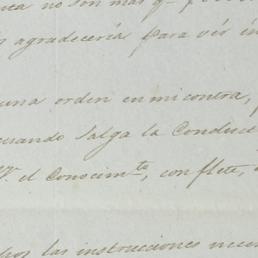 no son mas q.e
agradecería para vés
una orden en mi contra,
salga la Conduc
V. el Conocim.to, con flete,
las instrucciones nece